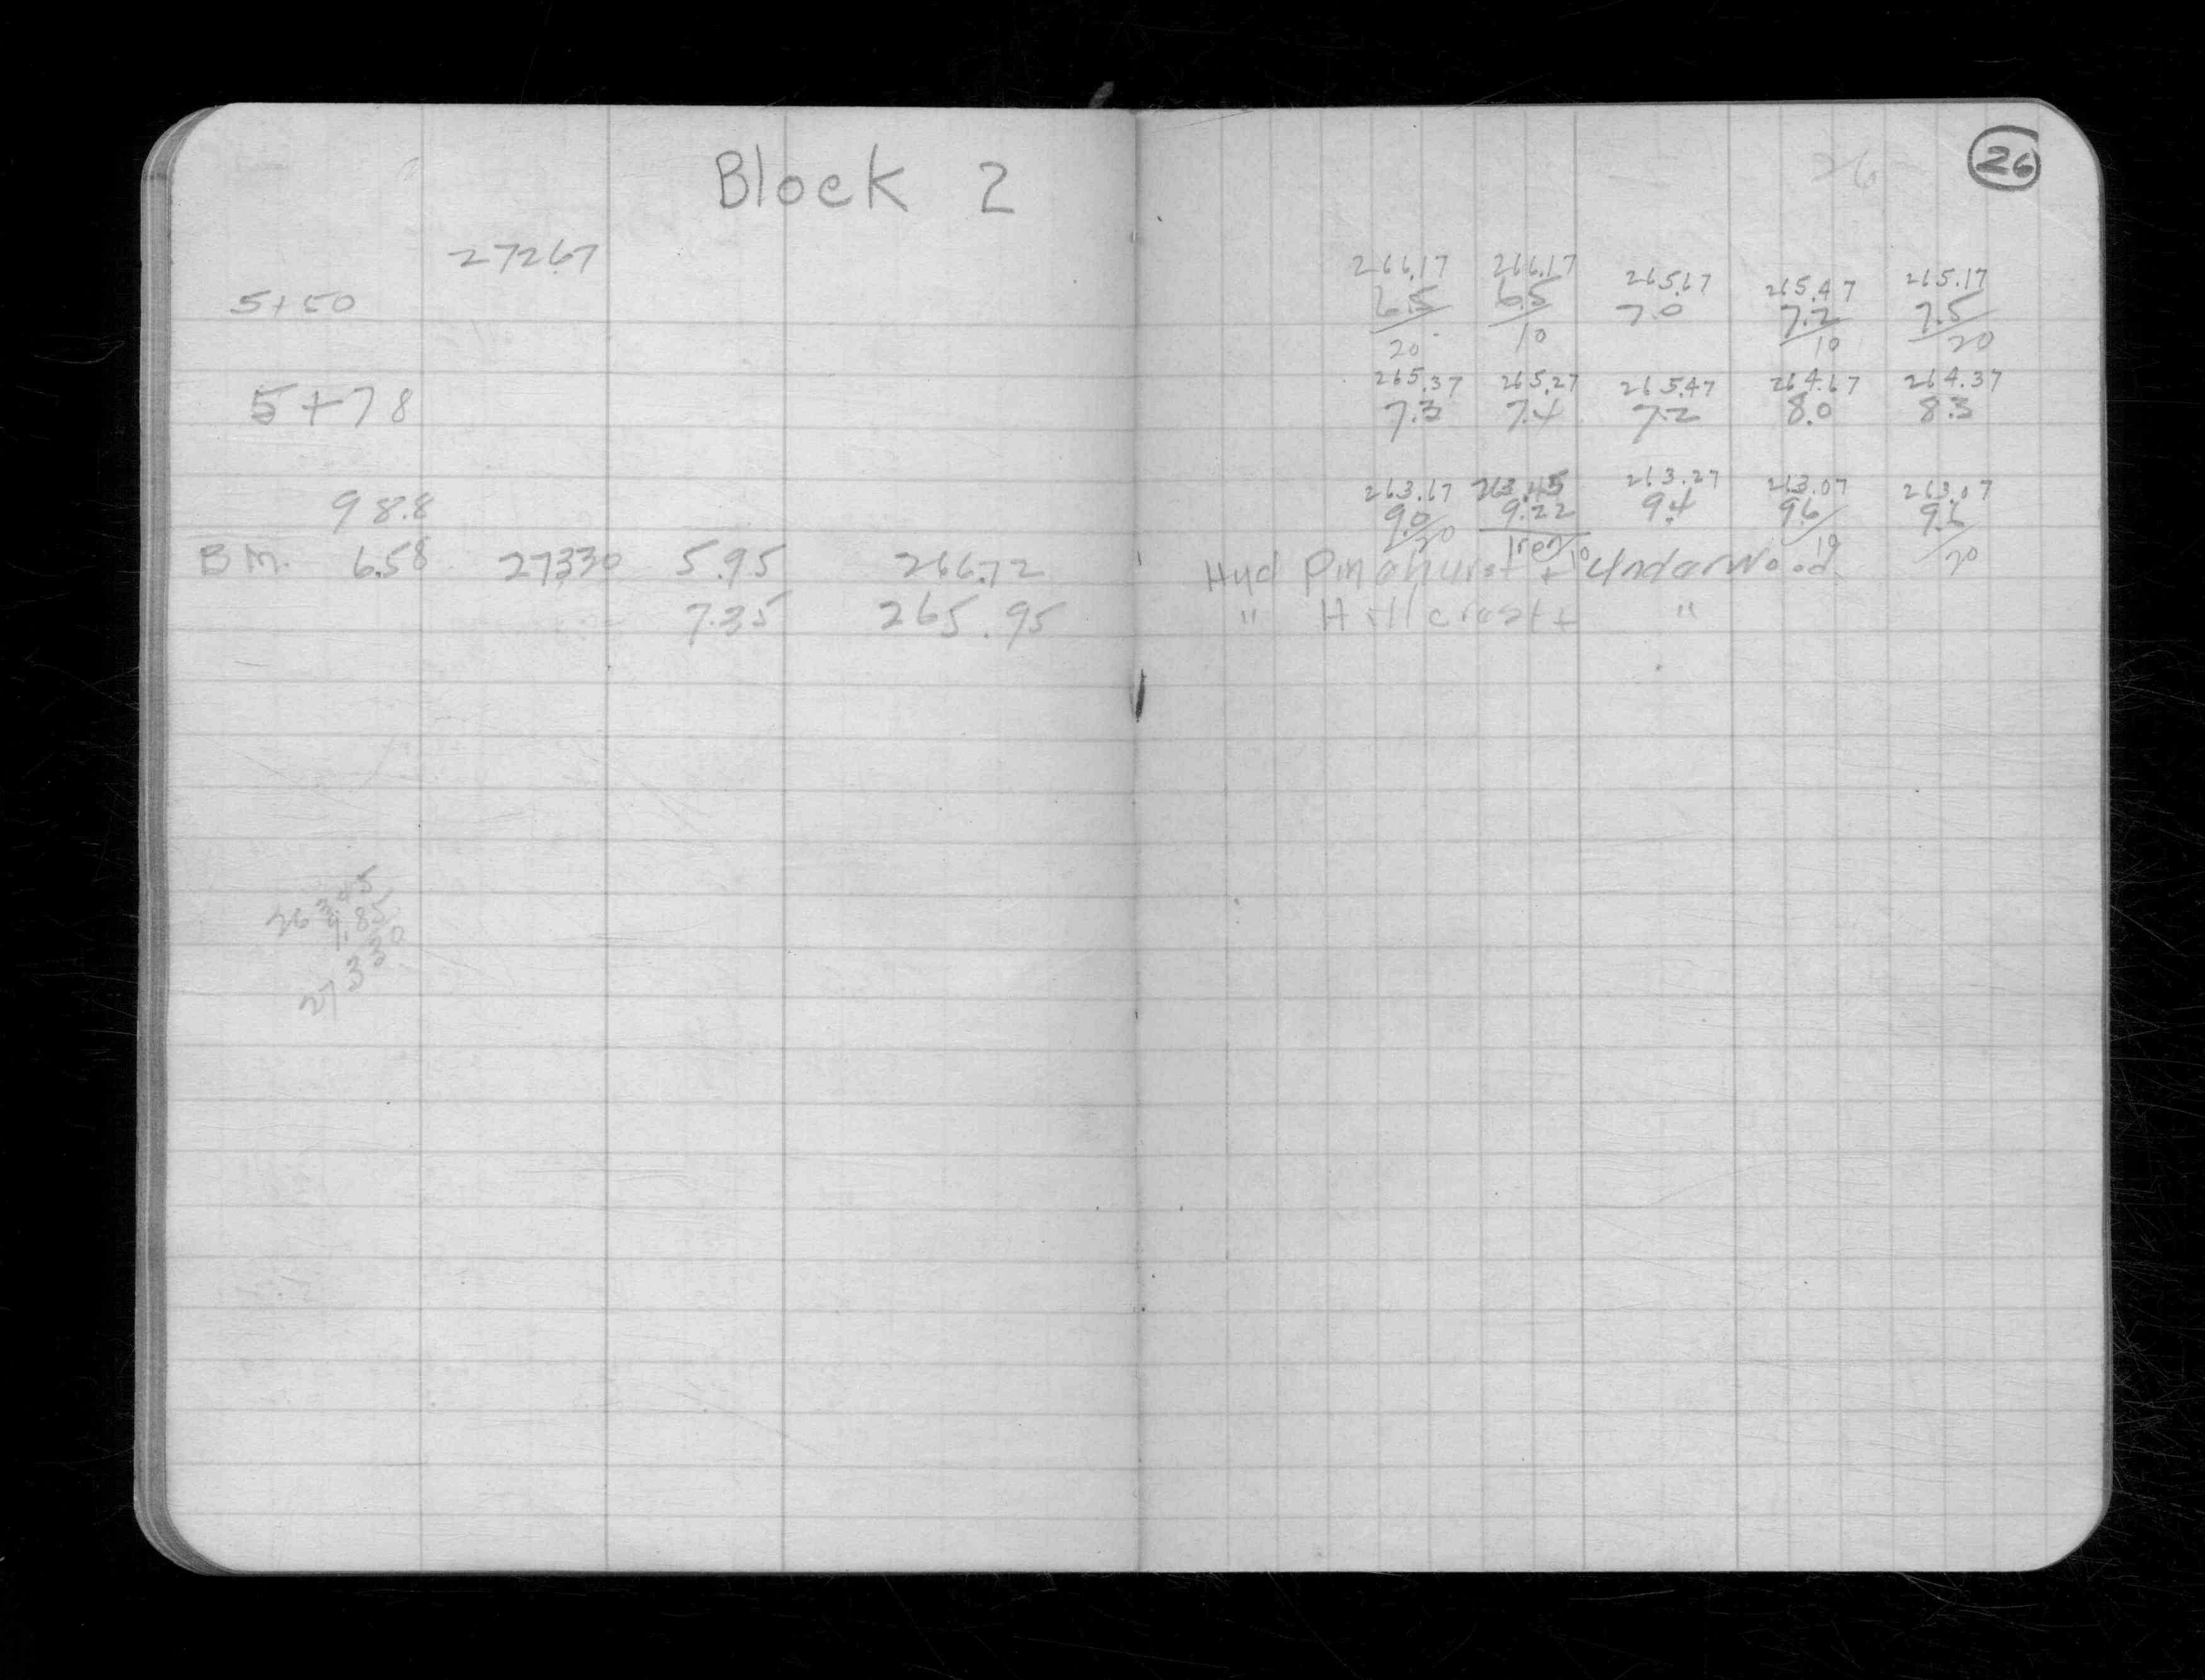 Block 2
26
26
272.67
266.17 266.17 265.67 265.47 265.17
5+50 6.5/20 6.5/10 7.0 7.2/10 7.5/20
265.37 265.27 265.47 264.67 264.37
5+78 7.3 7.4 7.2 8.0 8.3
263.67 263.45 263.27 263.07 263.07
988 9.0/20 9.22 Iron/10 9.4 9.6/10 9.6/20
B M. 6.58 273.30 5.95 266.72 Hyd Pinehurst + Underwood
7.35 265.95 " Hillcrest + "
263.45
9.85
273.30